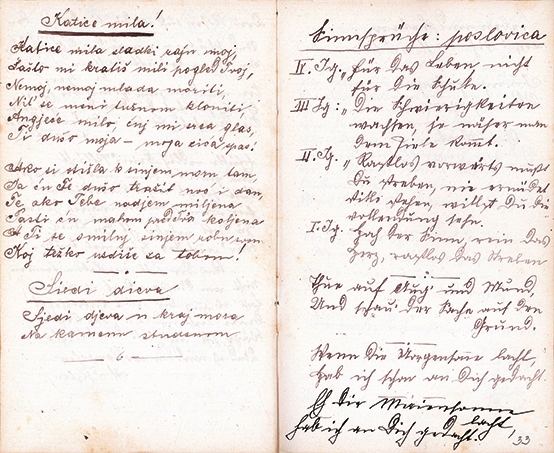 Katice mila!
Katice mila sladki raju moj,
Zašto mi kratiš mili pogled Tvoj,
Nemoj, nemoj mlada moriti,
Nit' se meni tužnom kloniti,
Angjeće milo, čuj mi srca glas,
Ti dušo moja – moja si va spas!
Ako si dišla k sinjem mom tam,
Ja ću Te dušo tražit noć i dan,
Te ako Tebe nadjem miljena
Pasti ću mahom pred Tva koljena
A Ti se smiluj sinjem robu svom
Koj težko uzdiše za tobom!
Sjedi djeva
Sjedi djeva u kraj mora
Na kamenu studenom
6
Sinnsprüche: poslovica
IV. Jg. „Für das Leben nicht
für die Schule.
III Jg: „Die Schwierigkeiten
wachsen, je näher man
dem Ziele komt.
II. Jg. „Rastlos vorwärts mußt
Du streben, nie ermüdet
stille stehen, willst Du die
Vollendung sehn.
I. Jg. Hoch der Sinn, rein das
Herz, rastlos das Streben
Thue auf Aug' und Mund,
Und schau' der Sache auf den
Grund.
Wenn die Morgensonne lacht,
Hab ich schon an Dich gedacht.
Eh die Maiensonne
lacht,
hab ich an Dich gedacht.
33